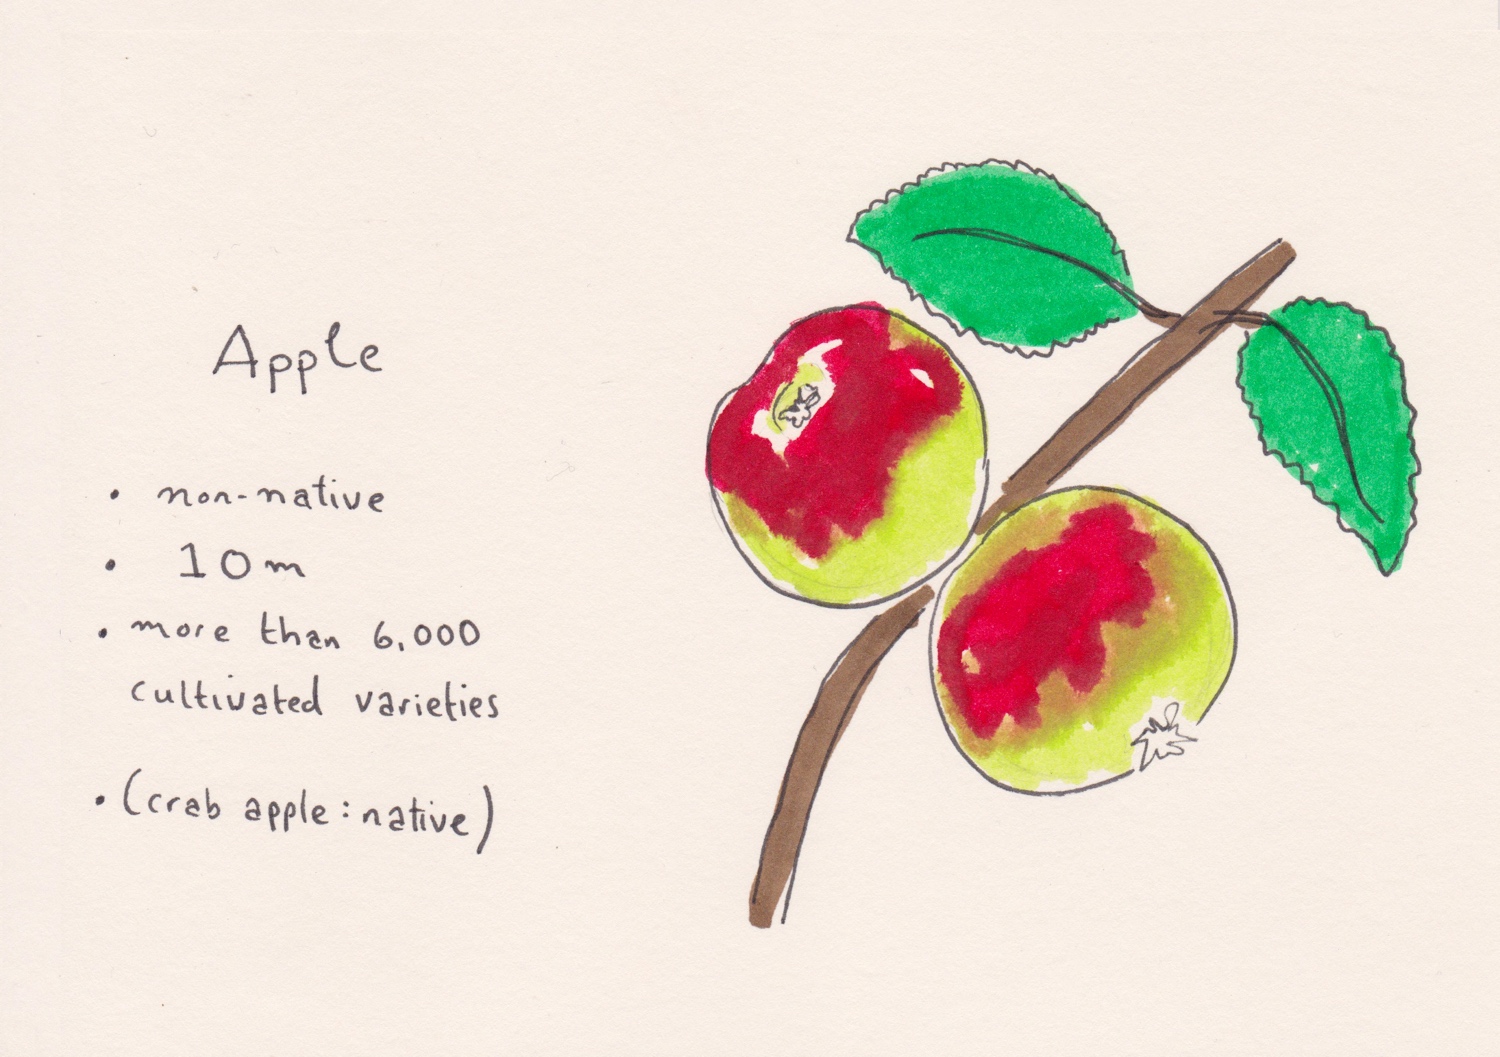 Apple
• non-native
• 10m
• more than 6,000
cultivated varieties
• (crab apple: native)